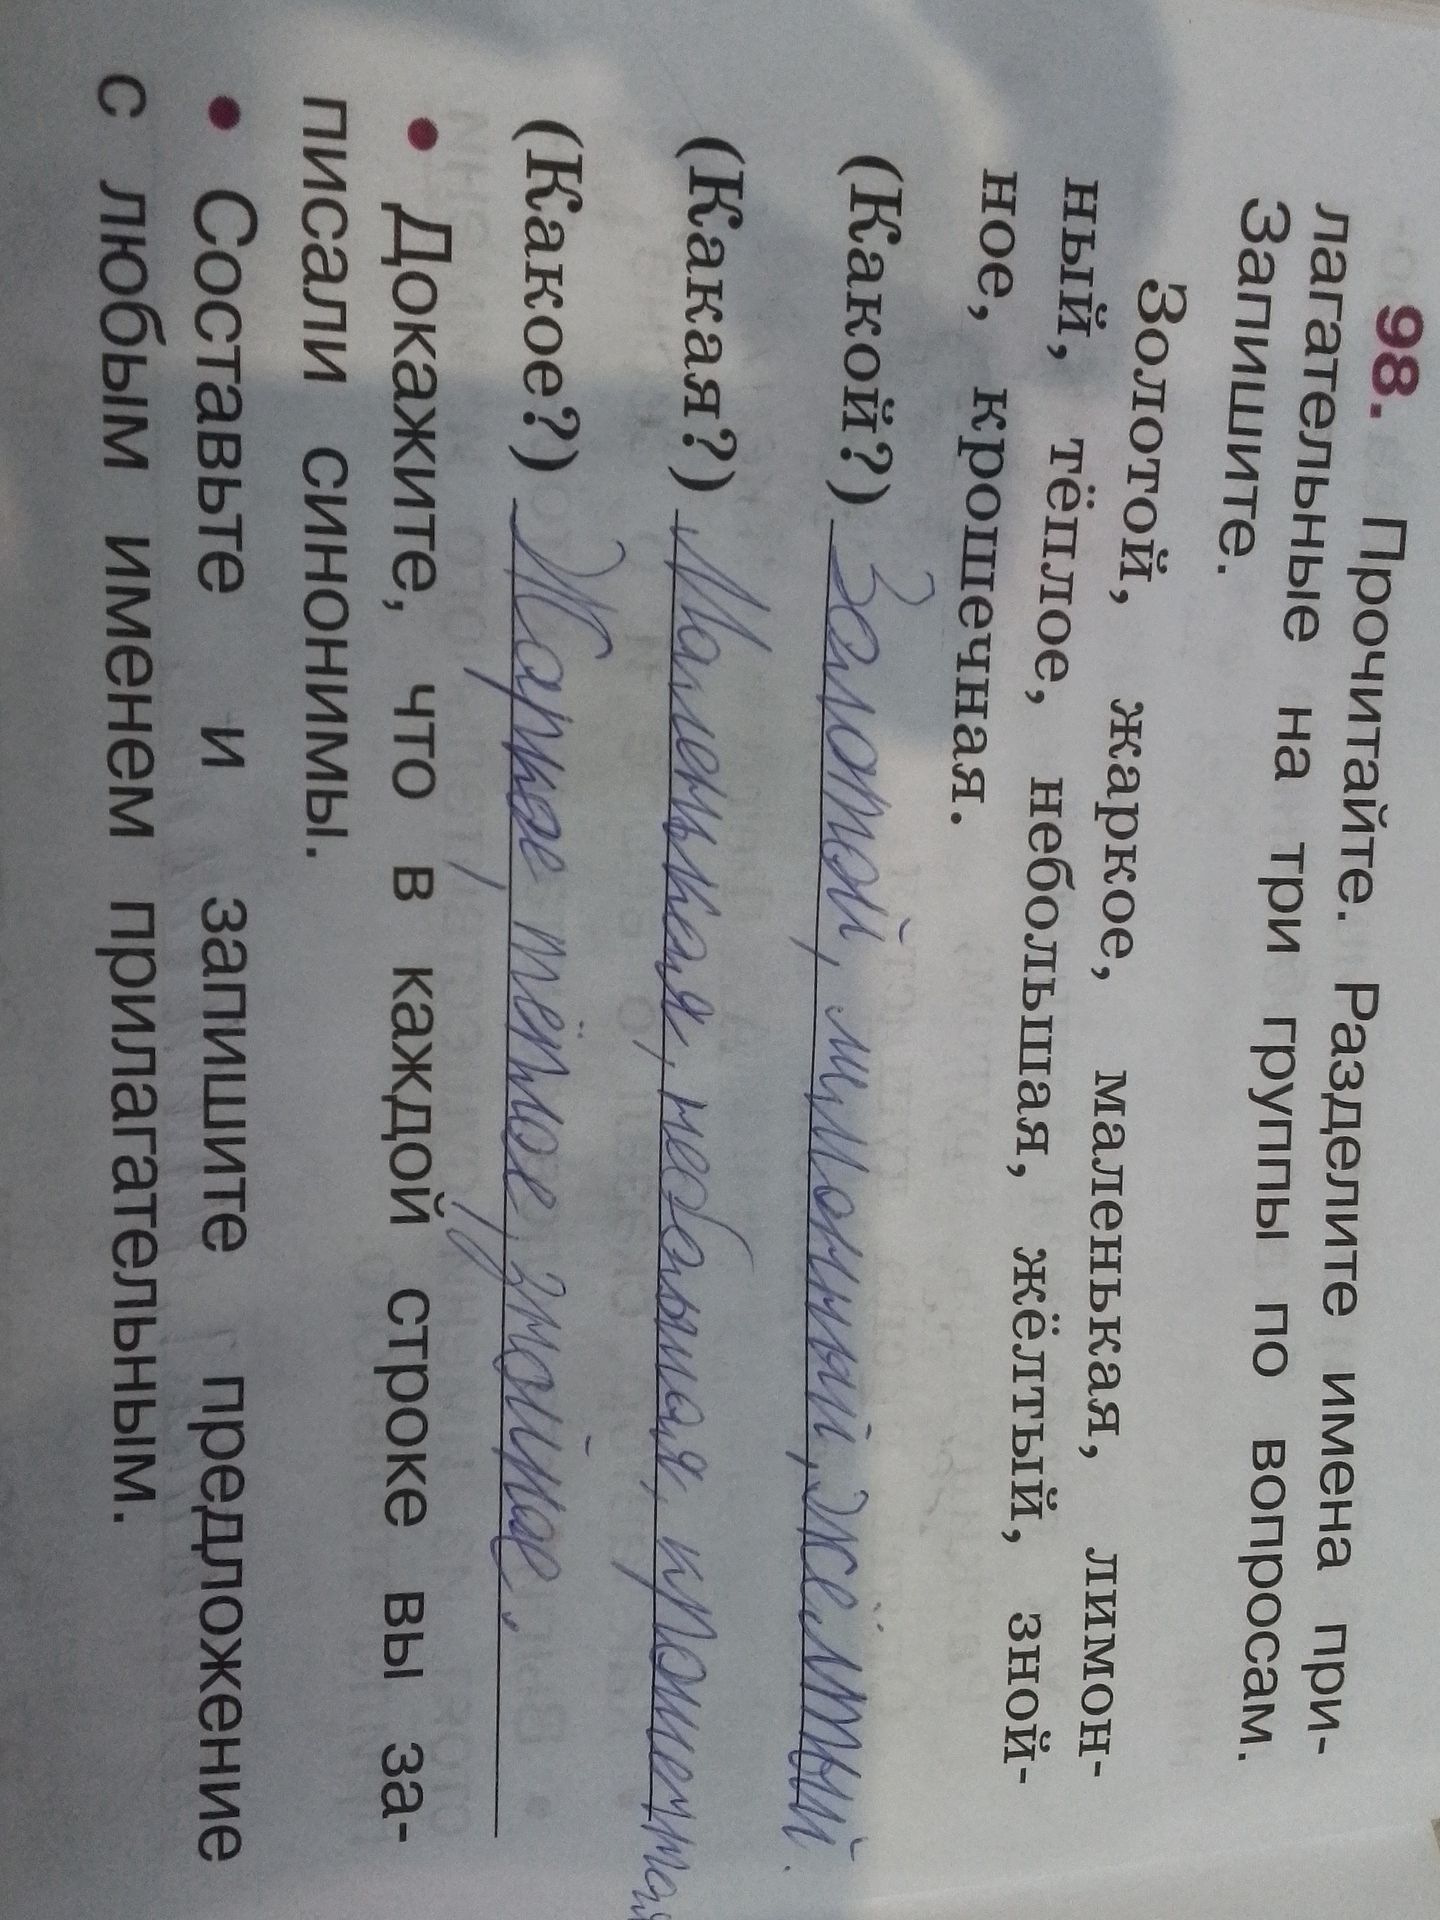 98. Прочитайте. Разделите имена при-
лагательные на три группы по вопросам.
Запишите.
Золотой, жаркое, маленькая, лимон-
ный, тёплое, небольшая, жёлтый, зной-
ное, крошечная.
(Какой?) Золотой, лимонный, жёлтый.
(Какая?) Маленькая, небольшая, крошечная
(Какое?) Жаркое, тёплое, знойное.
• Докажите, что в каждой строке вы за-
писали синонимы.
• Составьте и запишите предложение
с любым именем прилагательным.